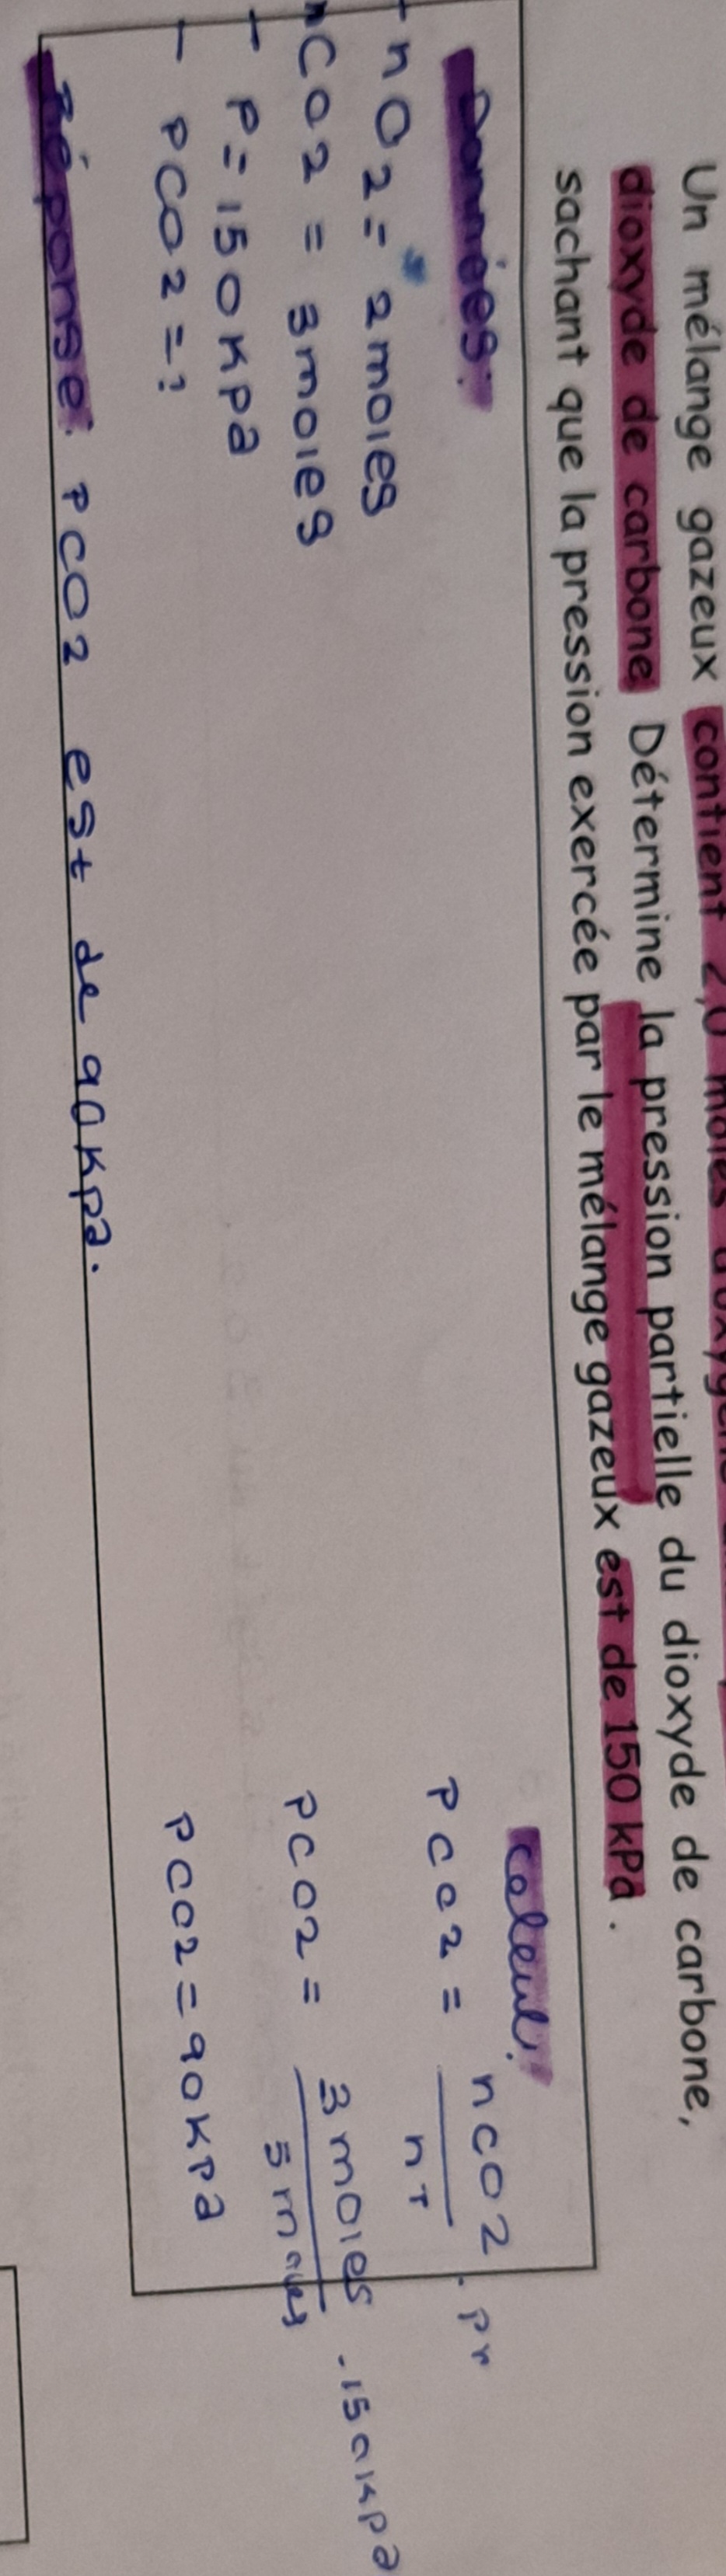 Un mélange gazeux contient 2,0 moles
dioxyde de carbone. Détermine la pression partielle du dioxyde de carbone,
sachant que la pression exercée par le mélange gazeux est de 150 kPa.
Données:
- nO2= 2moles
nCO2 = 3moles
- P=150KPa
- PCO2=?
Calcul:
PCO2 = nCO2 / nT . Pr
PCO2 = 3 moles / 5 moles . 150KPa
PCO2=90KPa
Réponse: PCO2 est de 90KPa.